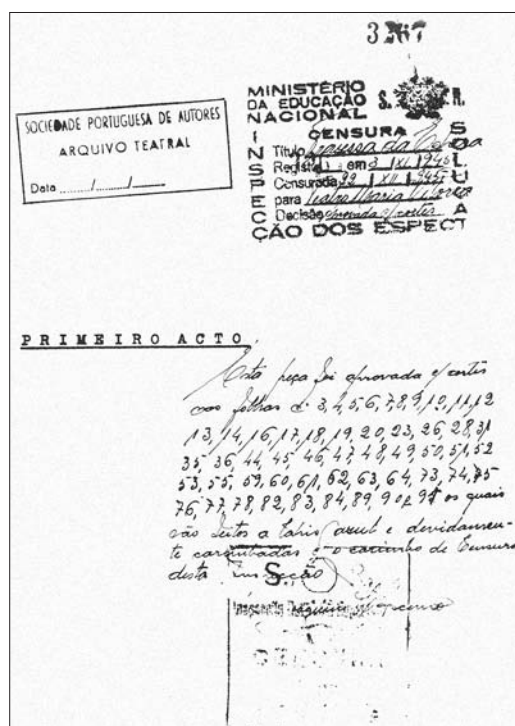 3267
SOCIEDADE PORTUGUESA DE AUTORES
ARQUIVO TEATRAL
Data ....../....../......
MINISTÉRIO
DA EDUCAÇÃO S. R.
NACIONAL
CENSURA
Titulo da
Regist em 3 / XI / 1945
Censurada 22 / XII / 1945
para Teatro Maria Vitoria
Decisão aprovada c/ cortes
INSPECÇÃO DOS ESPECT
PRIMEIRO ACTO
Esta peça foi aprovada c/ cortes
nas folhas nº 3, 4, 5, 6, 7, 8, 9, 10, 11, 12
13, 14, 16, 17, 18, 19, 20, 23, 26, 28, 31
35, 36, 44, 45, 46, 47, 48, 49, 50, 51, 52
53, 55, 59, 60, 61, 62, 63, 64, 73, 74, 75
76, 77, 78, 82, 83, 84, 89, 90 e 91 os quais
são feitos a lapis azul e devidamen-
te carimbadas c/ o carimbo de Censura
desta Inspecção
S.